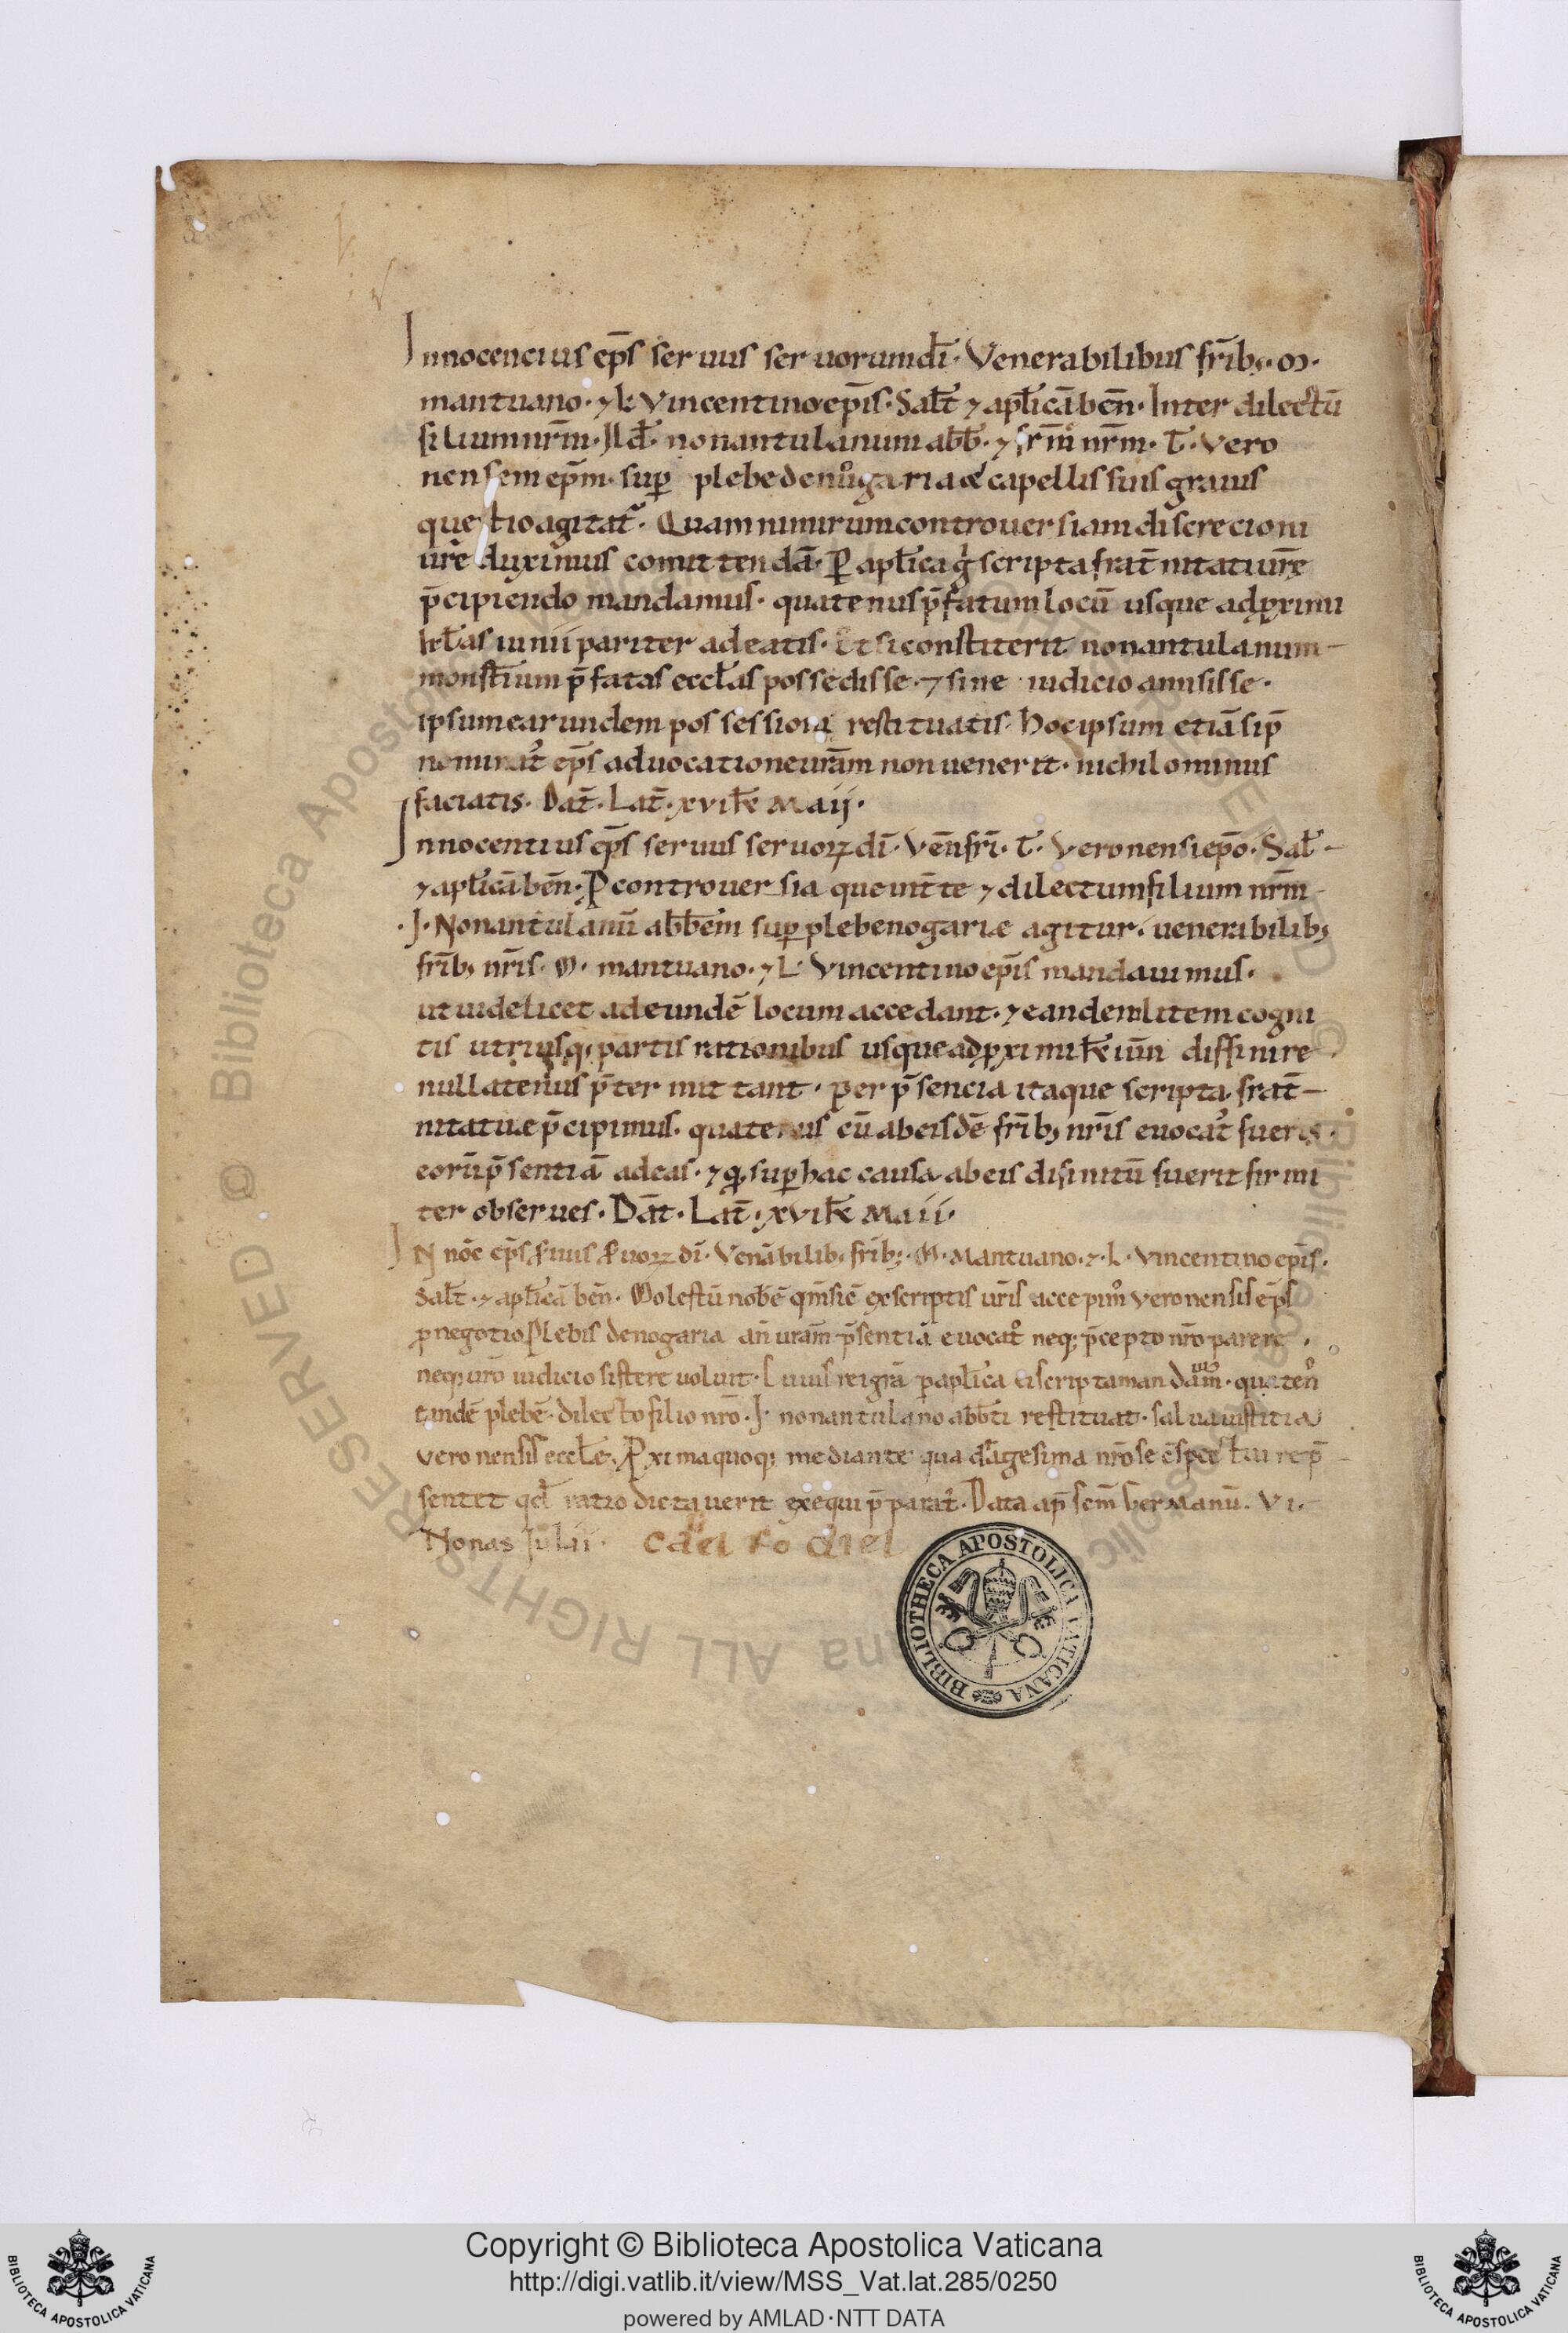 Innocencius ep̄s seruus seruorum dī· Venerabilibus fr̄ib;· M·
mantuano· ⁊ L· Vincentino ep̄is· Sal̄t ⁊ apl̄icā ben̄· Inter dilectū
filium nr̄m· Ild̄· nonantulanum abb̄· ⁊ fr̄m nr̄m· T̄· Vero
nensem ep̄m· suꝑ plebe de nugaria & capellis suis grauis
questio agitat᷑· Quam nimirum controuersiam discrecioni
ur̄e duximus comittendā· Per apl̄ica scripta frat̄nitati ur̄ę
p̄cipiendo mandamus· quatenus p̄fatum locū usque ad ꝓximi
kl̄as iunii pariter adeatis· Et si constiterit nonantulanum
monst̄ium p̄fatas eccl̄as possedisse· ⁊ sine iudicio amisisse·
ipsum earundem possessioni restituatis· Hoc ipsum etiā si p̄
nominat᷒ ep̄s ad uocatione urām non uenerit· nichilominus
faciatis· Dat̄· Lat̄· xvi kł Maii·
Innocentius ep̄s seruus seruoꝝ dī· Ven̄ frī· T̄· Veronensi ep̄o· Sal̄t
⁊ apl̄icā ben̄· P controuersia que int̄ te ⁊ dilectum filium nr̄m
·J· Nonantulanū abb̄em suꝑ plebe nogariæ agitur· uenerabilib;
fr̄ib; nr̄is· M· mantuano· ⁊ L· Vincentino ep̄is mandauimus·
ut uidelicet ad eundē locum accedant· ⁊ eandem litem cogni
tis utriusq; partis rationibus usque ad ꝓximi kł iun̄i diffinire
nullatenus p̄termittant· per p̄sencia itaque scripta frat̄
nitati tuæ p̄cipimus· quatenus cū ab eisdē fr̄ib; nr̄is euocat᷒ fueris·
eorū p̄sentiā adeas· ⁊ qđ suꝑ hac causa ab eis difinitū fuerit firmi
ter obserues· Dat̄· Lat̄· xvi kł Maii·
INnoc̄ ep̄s s̄uus s̄uoꝝ dī· Venābilib; fr̄ib;· M· Mantuano· ⁊· L· Vincentino ep̄is·
Sal̄t· ⁊ apl̄icā ben̄· Molestū nob̄ ē qm̄ sic̄ ex scriptis ur̄is accepim᷒ veronensis ep̄s
ꝓ negotio Plebis de nogaria an̄ urām p̄sentiā euocat᷒ neq; p̄cepto nr̄o parere
neq; ur̄o iudicio sistere uoluit· rei grā̄ ꝑ apl̄ica ei scripta mandam᷒· quaten᷒
eandē plebē· dilecto filio nr̄o· J· nonantulano abb̄ti restituat· salua iustitia
veronensis eccl̄e· Proxima quoq; mediante quadragesima nr̄o se c̄spectui rep̄
sentet qđ ratio dictauerit exequi p̄parat᷒· Data ap̄ scm̄ Germanū· VI·
Nonas Julii·
BIBLIOTHECA APOSTOLICA VATICANA
© Biblioteca Apostolica Vaticana ALL RIGHTS RESERVED
Copyright © Biblioteca Apostolica Vaticana
http://digi.vatlib.it/view/MSS_Vat.lat.285/0250
powered by AMLAD·NTT DATA
BIBLIOTECA APOSTOLICA VATICANA
BIBLIOTECA APOSTOLICA VATICANA